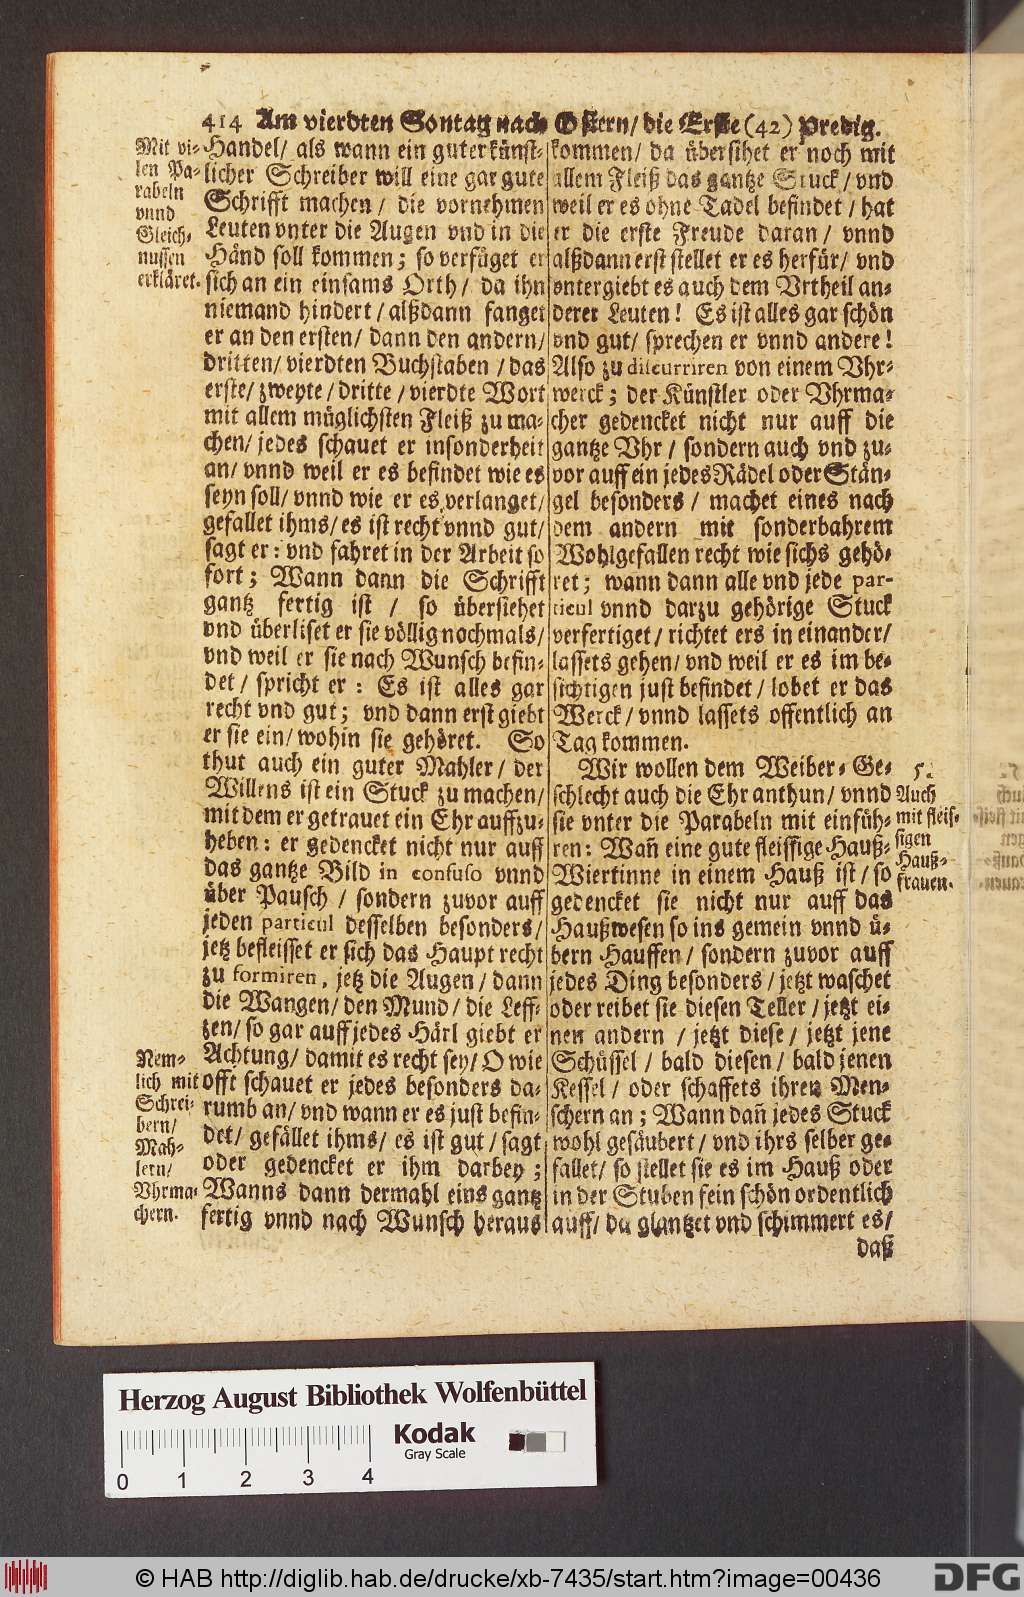 414 Am vierdten Sontag nach Ostern/ die Erste (42) Predig.
Mit vi-
len Pa-
rabeln
vnnd
Gleich-
nussen
erkläret.
Handel/ als wann ein guter künst-
licher Schreiber will eine gar gute
Schrifft machen/ die vornehmen
Leuten vnter die Augen vnd in die
Händ soll kommen; so verfüget er
sich an ein einsams Orth/ da ihn
niemand hindert/ alßdann fanget
er an den ersten/ dann den andern/
dritten/ vierdten Buchstaben/ das
erste/ zweyte/ dritte/ vierdte Wort
mit allem müglichsten Fleiß zu ma-
chen/ jedes schauet er insonderheit
an/ vnnd weil er es befindet wie es
seyn soll/ vnnd wie er es verlanget/
gefallet ihms/ es ist recht vnnd gut/
sagt er: vnd fahret in der Arbeit so
fort; Wann dann die Schrifft
gantz fertig ist / so übersiehet
vnd überliset er sie völlig nochmals/
vnd weil er sie nach Wunsch befin-
det/ spricht er: Es ist alles gar
recht vnd gut; vnd dann erst giebt
er sie ein/ wohin sie gehöret. So
thut auch ein guter Mahler/ der
Willens ist ein Stuck zu machen/
mit dem er getrauet ein Ehr auffzu-
heben: er gedencket nicht nur auff
das gantze Bild in confuso vnnd
über Pausch / sondern zuvor auff
jeden particul desselben besonders/
jetz befleisset er sich das Haupt recht
zu formiren, jetz die Augen/ dann
die Wangen/ den Mund/ die Leff-
zen/ so gar auff jedes Härl giebt er
Achtung/ damit es recht sey/ O wie
offt schauet er jedes besonders da-
rumb an/ vnd wann er es just befin-
det/ gefället ihms/ es ist gut/ sagt
oder gedencket er ihm darbey;
Wanns dann dermahl eins gantz
fertig vnnd nach Wunsch heraus
Nem-
lich mit
Schrei-
bern/
Mah-
lern/
Vhrma-
chern.
kommen/ da übersihet er noch mit
allem Fleiß das gantze Stuck/ vnd
weil er es ohne Tadel befindet/ hat
er die erste Freude daran/ vnnd
alßdann erst stellet er es herfür/ vnd
vntergiebt es auch dem Vrtheil an-
derer Leuten! Es ist alles gar schön
vnd gut/ sprechen er vnnd andere!
Also zu discurriren von einem Vhr-
werck; der Künstler oder Vhrma-
cher gedencket nicht nur auff die
gantze Vhr/ sondern auch vnd zu-
vor auff ein jedes Rädel oder Stän-
gel besonders/ machet eines nach
dem andern mit sonderbahrem
Wohlgefallen recht wie sichs gehö-
ret; wann dann alle vnd jede par-
ticul vnnd darzu gehörige Stuck
verfertiget/ richtet ers in einander/
lassets gehen/ vnd weil er es im be-
sichtigen just befindet/ lobet er das
Werck/ vnnd lassets offentlich an
Tag kommen.
Wir wollen dem Weiber-Ge-
schlecht auch die Ehr anthun/ vnnd
sie vnter die Parabeln mit einfüh-
ren: Wañ eine gute fleissige Hauß-
Wiertinne in einem Hauß ist/ so
gedencket sie nicht nur auff das
Haußwesen so ins gemein vnnd ü-
bern Hauffen/ sondern zuvor auff
jedes Ding besonders/ jetzt waschet
oder reibet sie diesen Teller/ jetzt ei-
nen andern / jetzt diese/ jetzt jene
Schüssel / bald diesen/ bald jenen
Kessel/ oder schaffets ihren Men-
schern an; Wann dañ jedes Stuck
wohl gesäubert/ vnd ihrs selber ge-
fallet/ so stellet sie es im Hauß oder
in der Stuben fein schön ordentlich
auff/ da glantzet vnd schimmert es/
daß
52.
Auch
mit fleis-
sigen
Hauß-
frauen.
Herzog August Bibliothek Wolfenbüttel
Kodak
Gray Scale
0 1 2 3 4
© HAB http://diglib.hab.de/drucke/xb-7435/start.htm?image=00436
DFG